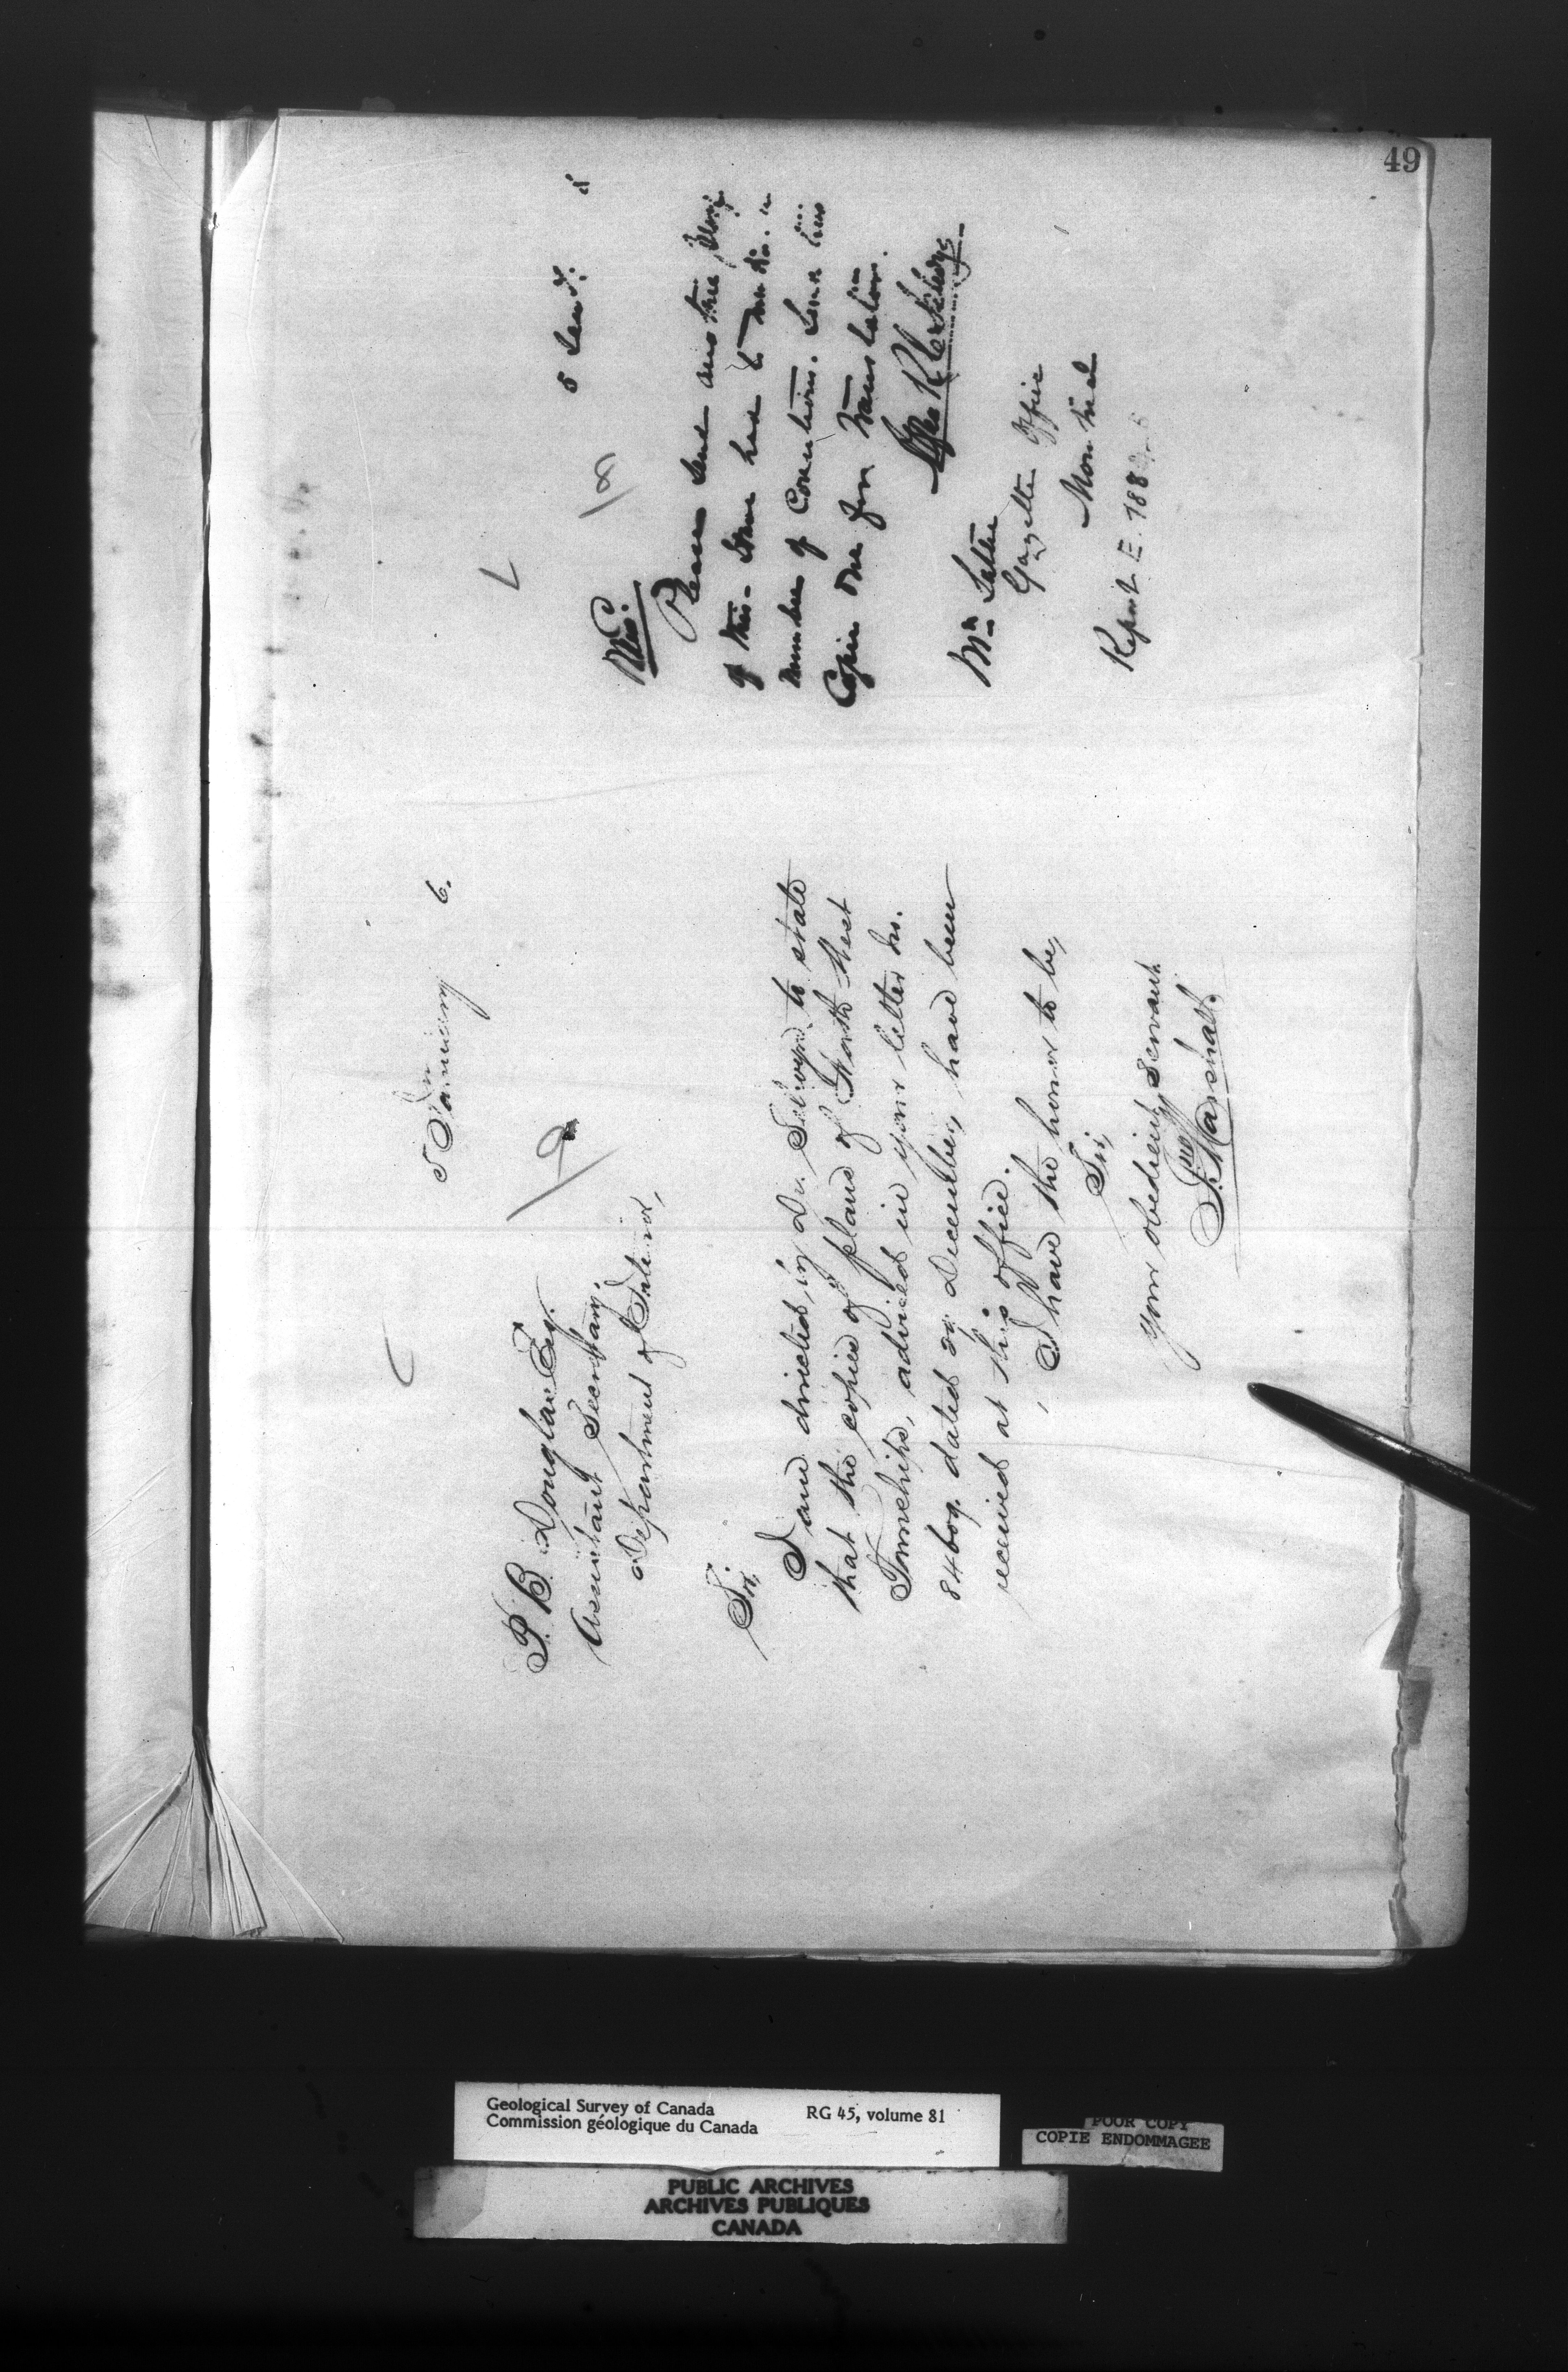 49
5 January 6.
P. B. Douglas Esq.
Assistant Secretary,
Department of Interior,
Sir,
I am directed by Dr. Selwyn to state
that the copies of plans of North West
Townships, advised in your letter No.
84609. dated 29 December, have been
received at this office.
I have the honor to be,
Sir,
Your obedient Servant
J. Marshall.
5 Jany.
Please send
of this. Some had to
number of Corrections. Send
Copies one for translation.
Mr.
Gazette Office
Montreal
Report E. 188
Geological Survey of Canada RG 45, volume 81
Commission géologique du Canada
POOR COPY
COPIE ENDOMMAGEE
PUBLIC ARCHIVES
ARCHIVES PUBLIQUES
CANADA